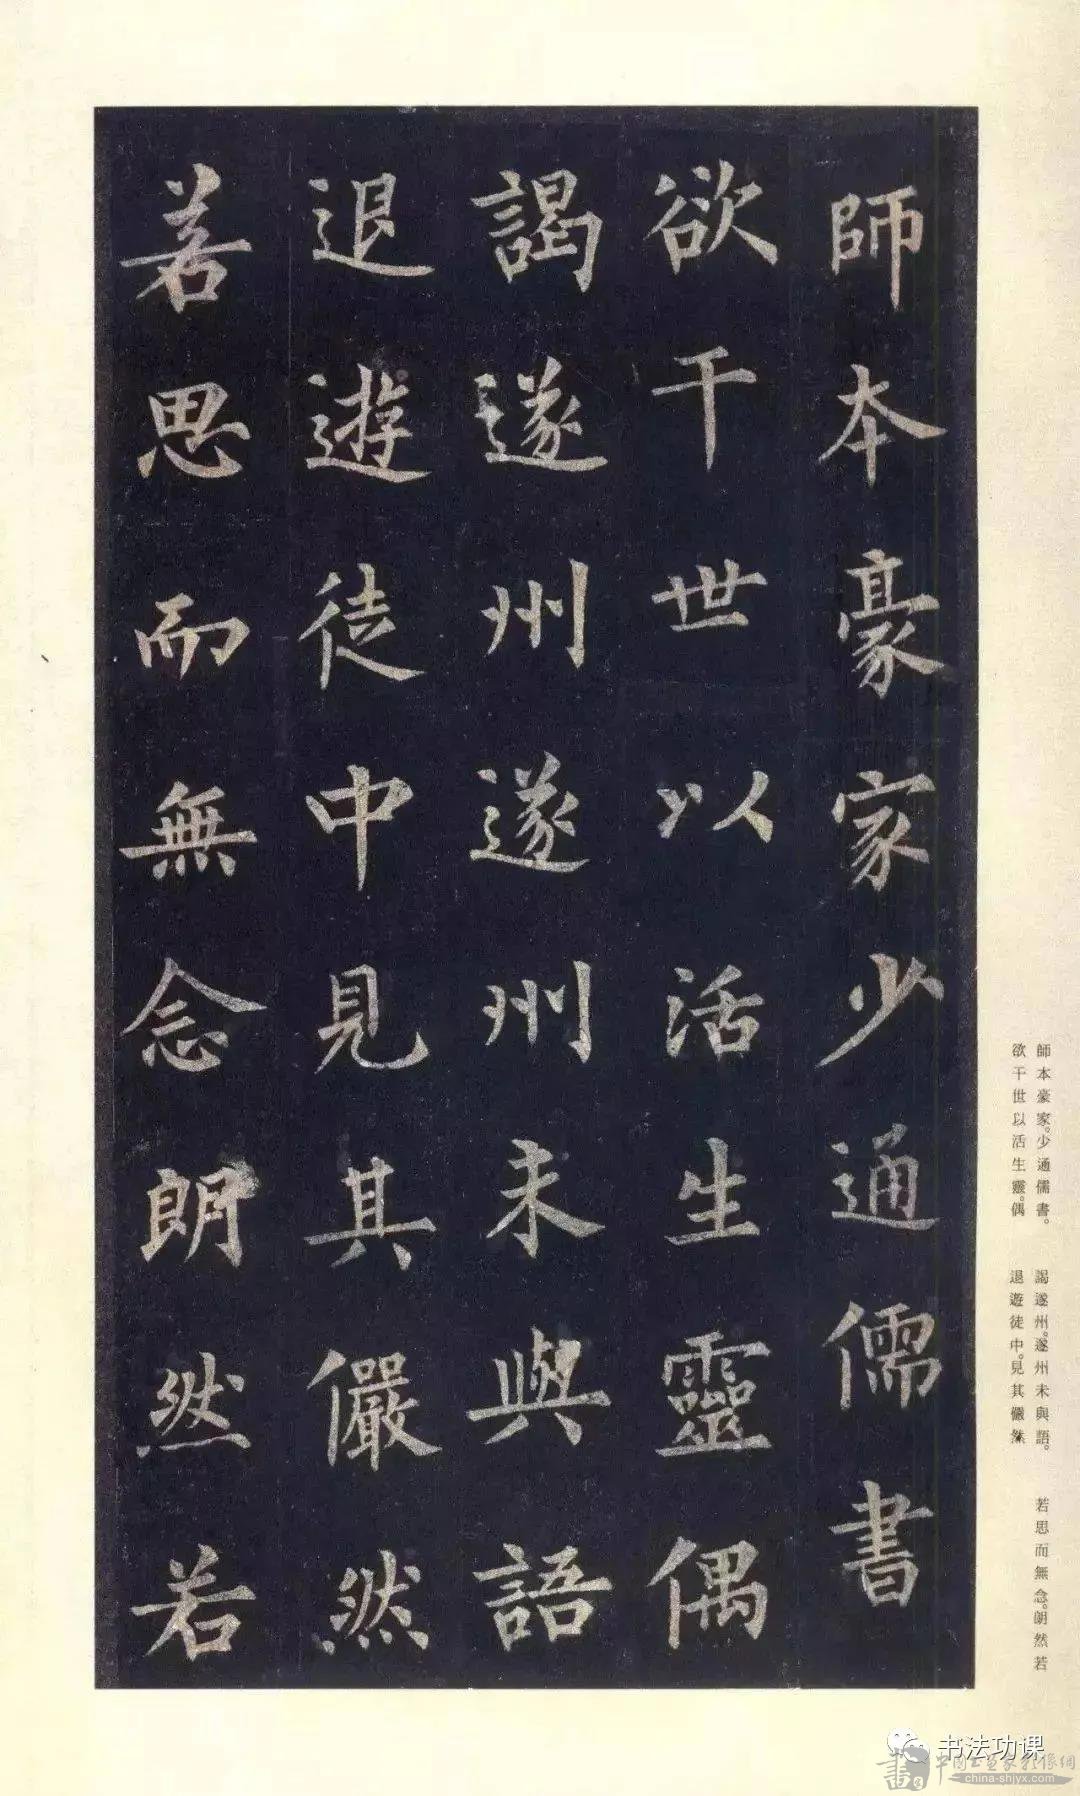 師本豪家少通儒書
欲干世以活生靈偶
謁遂州遂州未與語
退遊徒中見其儼然
若思而無念朗然若
師本豪家。少通儒書。
欲干世以活生靈。偶
謁遂州。遂州未與語。
退遊徒中。見其儼然
若思而無念。朗然若
书法功课
中国书画家影像網
china-shjyx.com